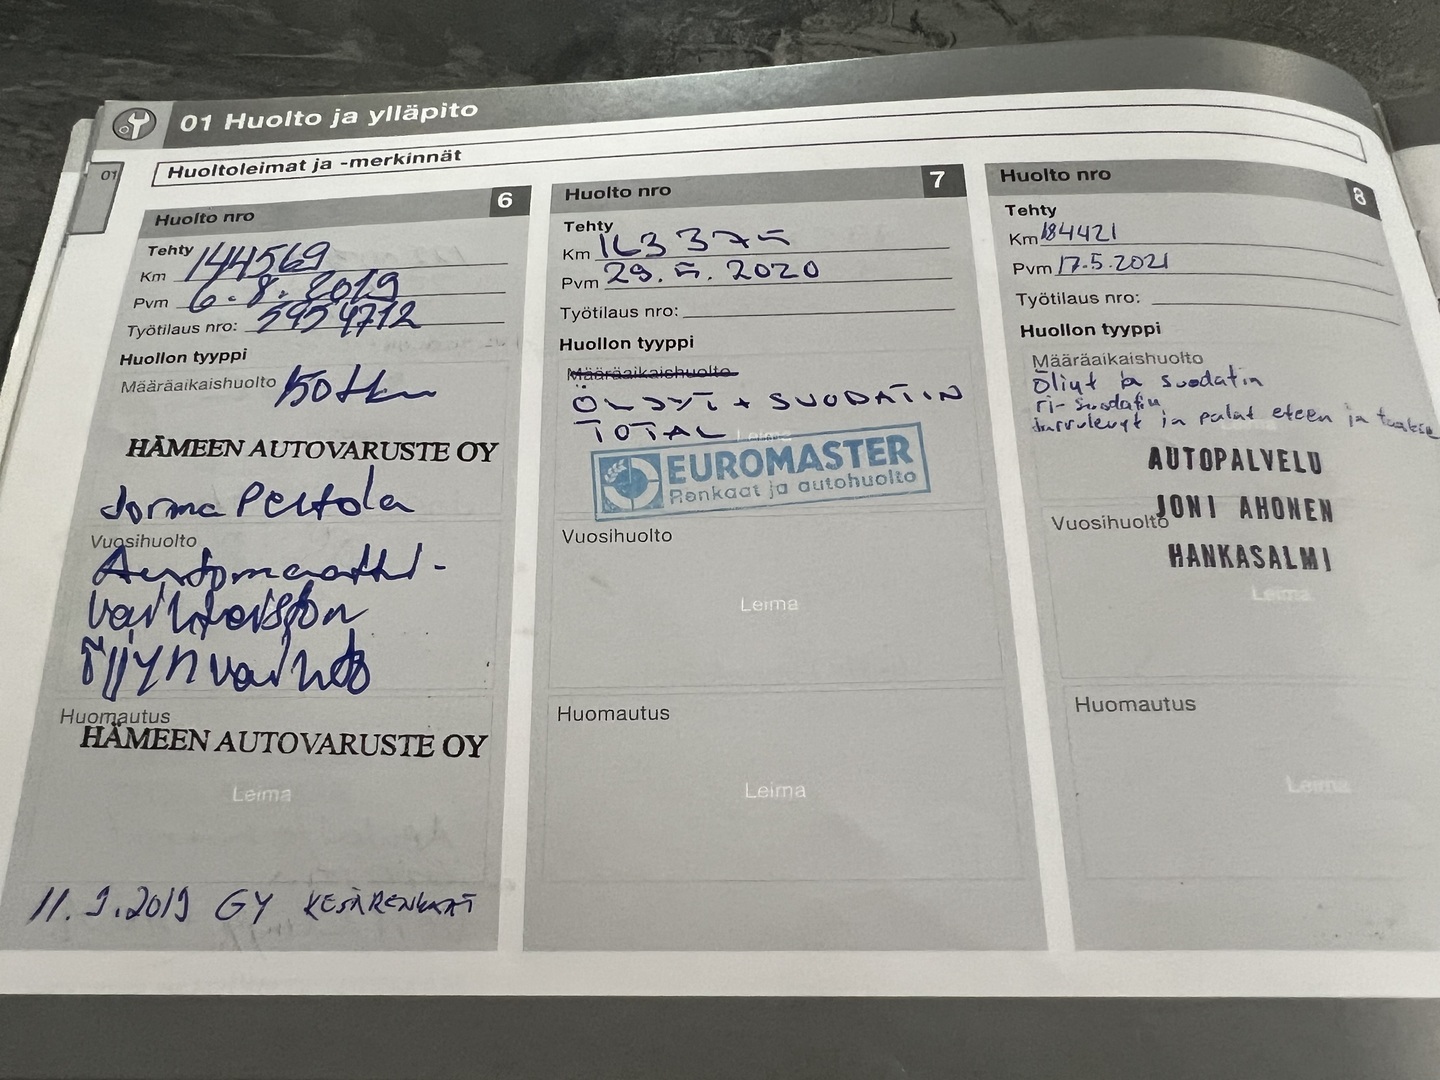 01 Huolto ja ylläpito
01
Huoltoleimat ja -merkinnät
Huolto nro 6
Tehty
Km 144569
Pvm 6.8.2019
Työtilaus nro: 5954712
Huollon tyyppi
Määräaikaishuolto 150tkm
HÄMEEN AUTOVARUSTE OY
Jorma Peltola
Vuosihuolto
Automaatti-
vaihteiston
öljynvaihto
Huomautus
HÄMEEN AUTOVARUSTE OY
Leima
11.9.2019 GY KESÄRENKAAT
Huolto nro 7
Tehty
Km 163375
Pvm 29.5.2020
Työtilaus nro:
Huollon tyyppi
Määräaikaishuolto
ÖLJYT + SUODATIN
TOTAL
Leima
EUROMASTER
Renkaat ja autohuolto
Vuosihuolto
Leima
Huomautus
Leima
Huolto nro 8
Tehty
Km 184421
Pvm 17.5.2021
Työtilaus nro:
Huollon tyyppi
Määräaikaishuolto
Öljyt ja suodatin
ri-suodatin
Jarrulevyt ja palat eteen ja taakse
AUTOPALVELU
JONI AHONEN
Vuosihuolto
HANKASALMI
Leima
Huomautus
Leima